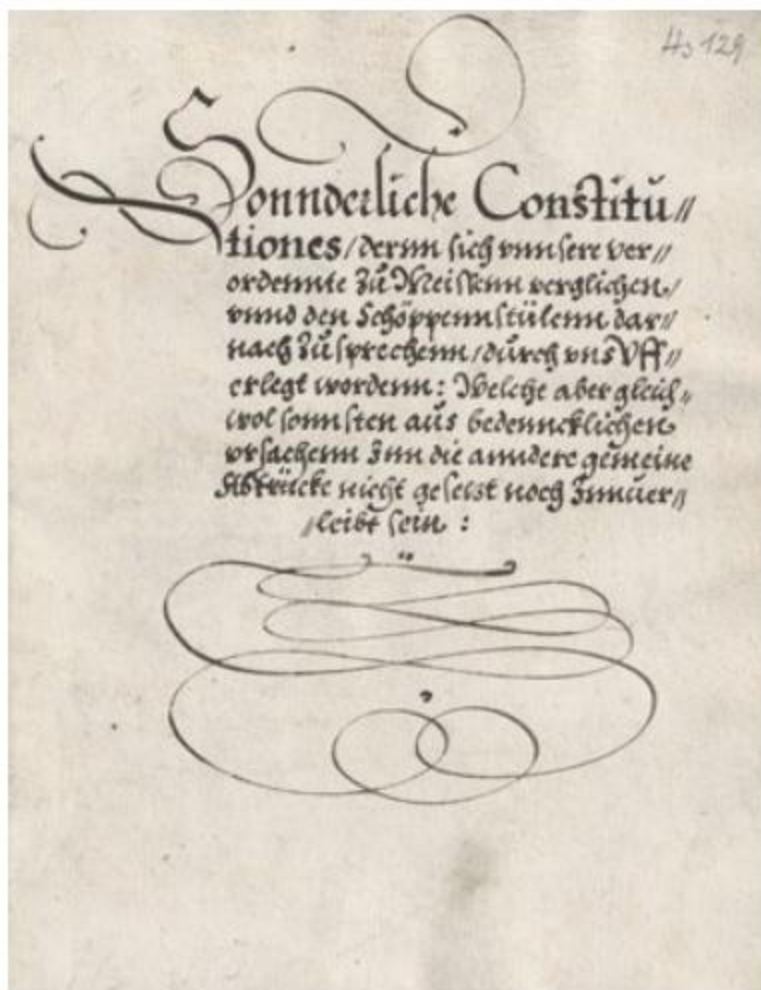 Hs 129
Sonnderliche Constitu//
tiones/dernn sich vnnsere ver//
ordennte Zů Meissenn verglichen/
vnnd den Schöppennstülenn dar//
nach Zůsprechenn/důrch vns Vff//
erlegt wordenn: Welche aber gleich//
wol sonnsten aůs bedenncklichen
vrsachenn Inn die anndere gemeine
Abtrücke nicht gesetzt noch Innůer//
//leibt sein :